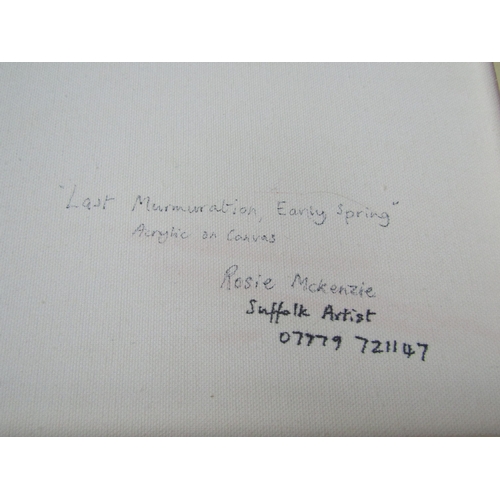 "Last Murmuration, Early Spring"
Acrylic on Canvas
Rosie Mckenzie
Suffolk Artist
07779 721147